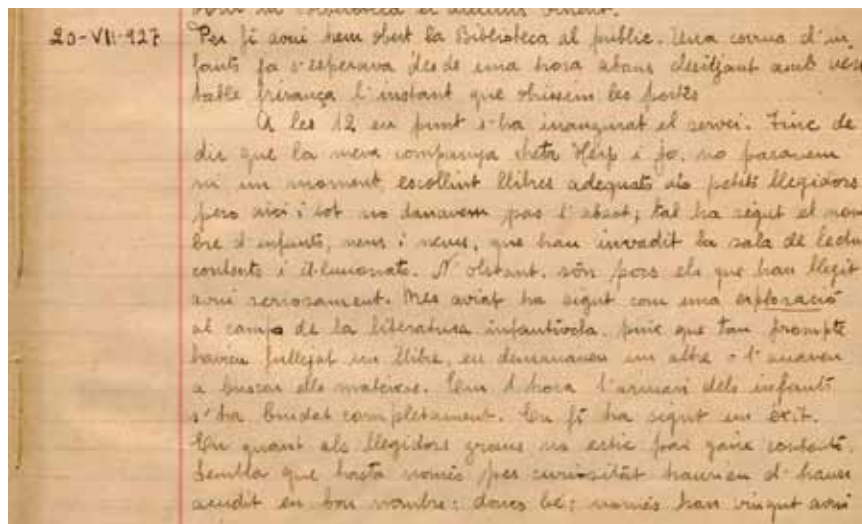 la Biblioteca el dilluns vinent.
20-VII-927 Per fi avui hem obert la Biblioteca al public. Una corrua d'in
fants ja s'esperava desde una hora abans desitjant amb veri
table frisança l'instant que obrissim les portes
A les 12 en punt s'ha inaugurat el servei. Tinc de
dir que la meva companya Srta Herp i jo, no paravem
ni un moment, escollint llibres adequats als petits llegidors
pero aixi i tot no donavem pas l'abast; tal ha sigut el nom
bre d'infants, nens i nenes, que han invadit la sala de lectu
contents i il·lusionats. N'obstant, són pocs els que han llegit
avui seriosament. Mes aviat ha sigut com una exploració
al camp de la literatura infantivola, puix que tan prompte
havien fullejat un llibre, en demanaven un altre o l'anaven
a buscar ells mateixos. En 1 hora l'armari dels infants
s'ha buidat completament. En fi ha sigut un èxit.
En quant als llegidors grans no estic pas gaire contenta.
Sembla que hasta només per curiositat haurien d'haver
acudit en bon nombre; doncs bé; només han vingut avui